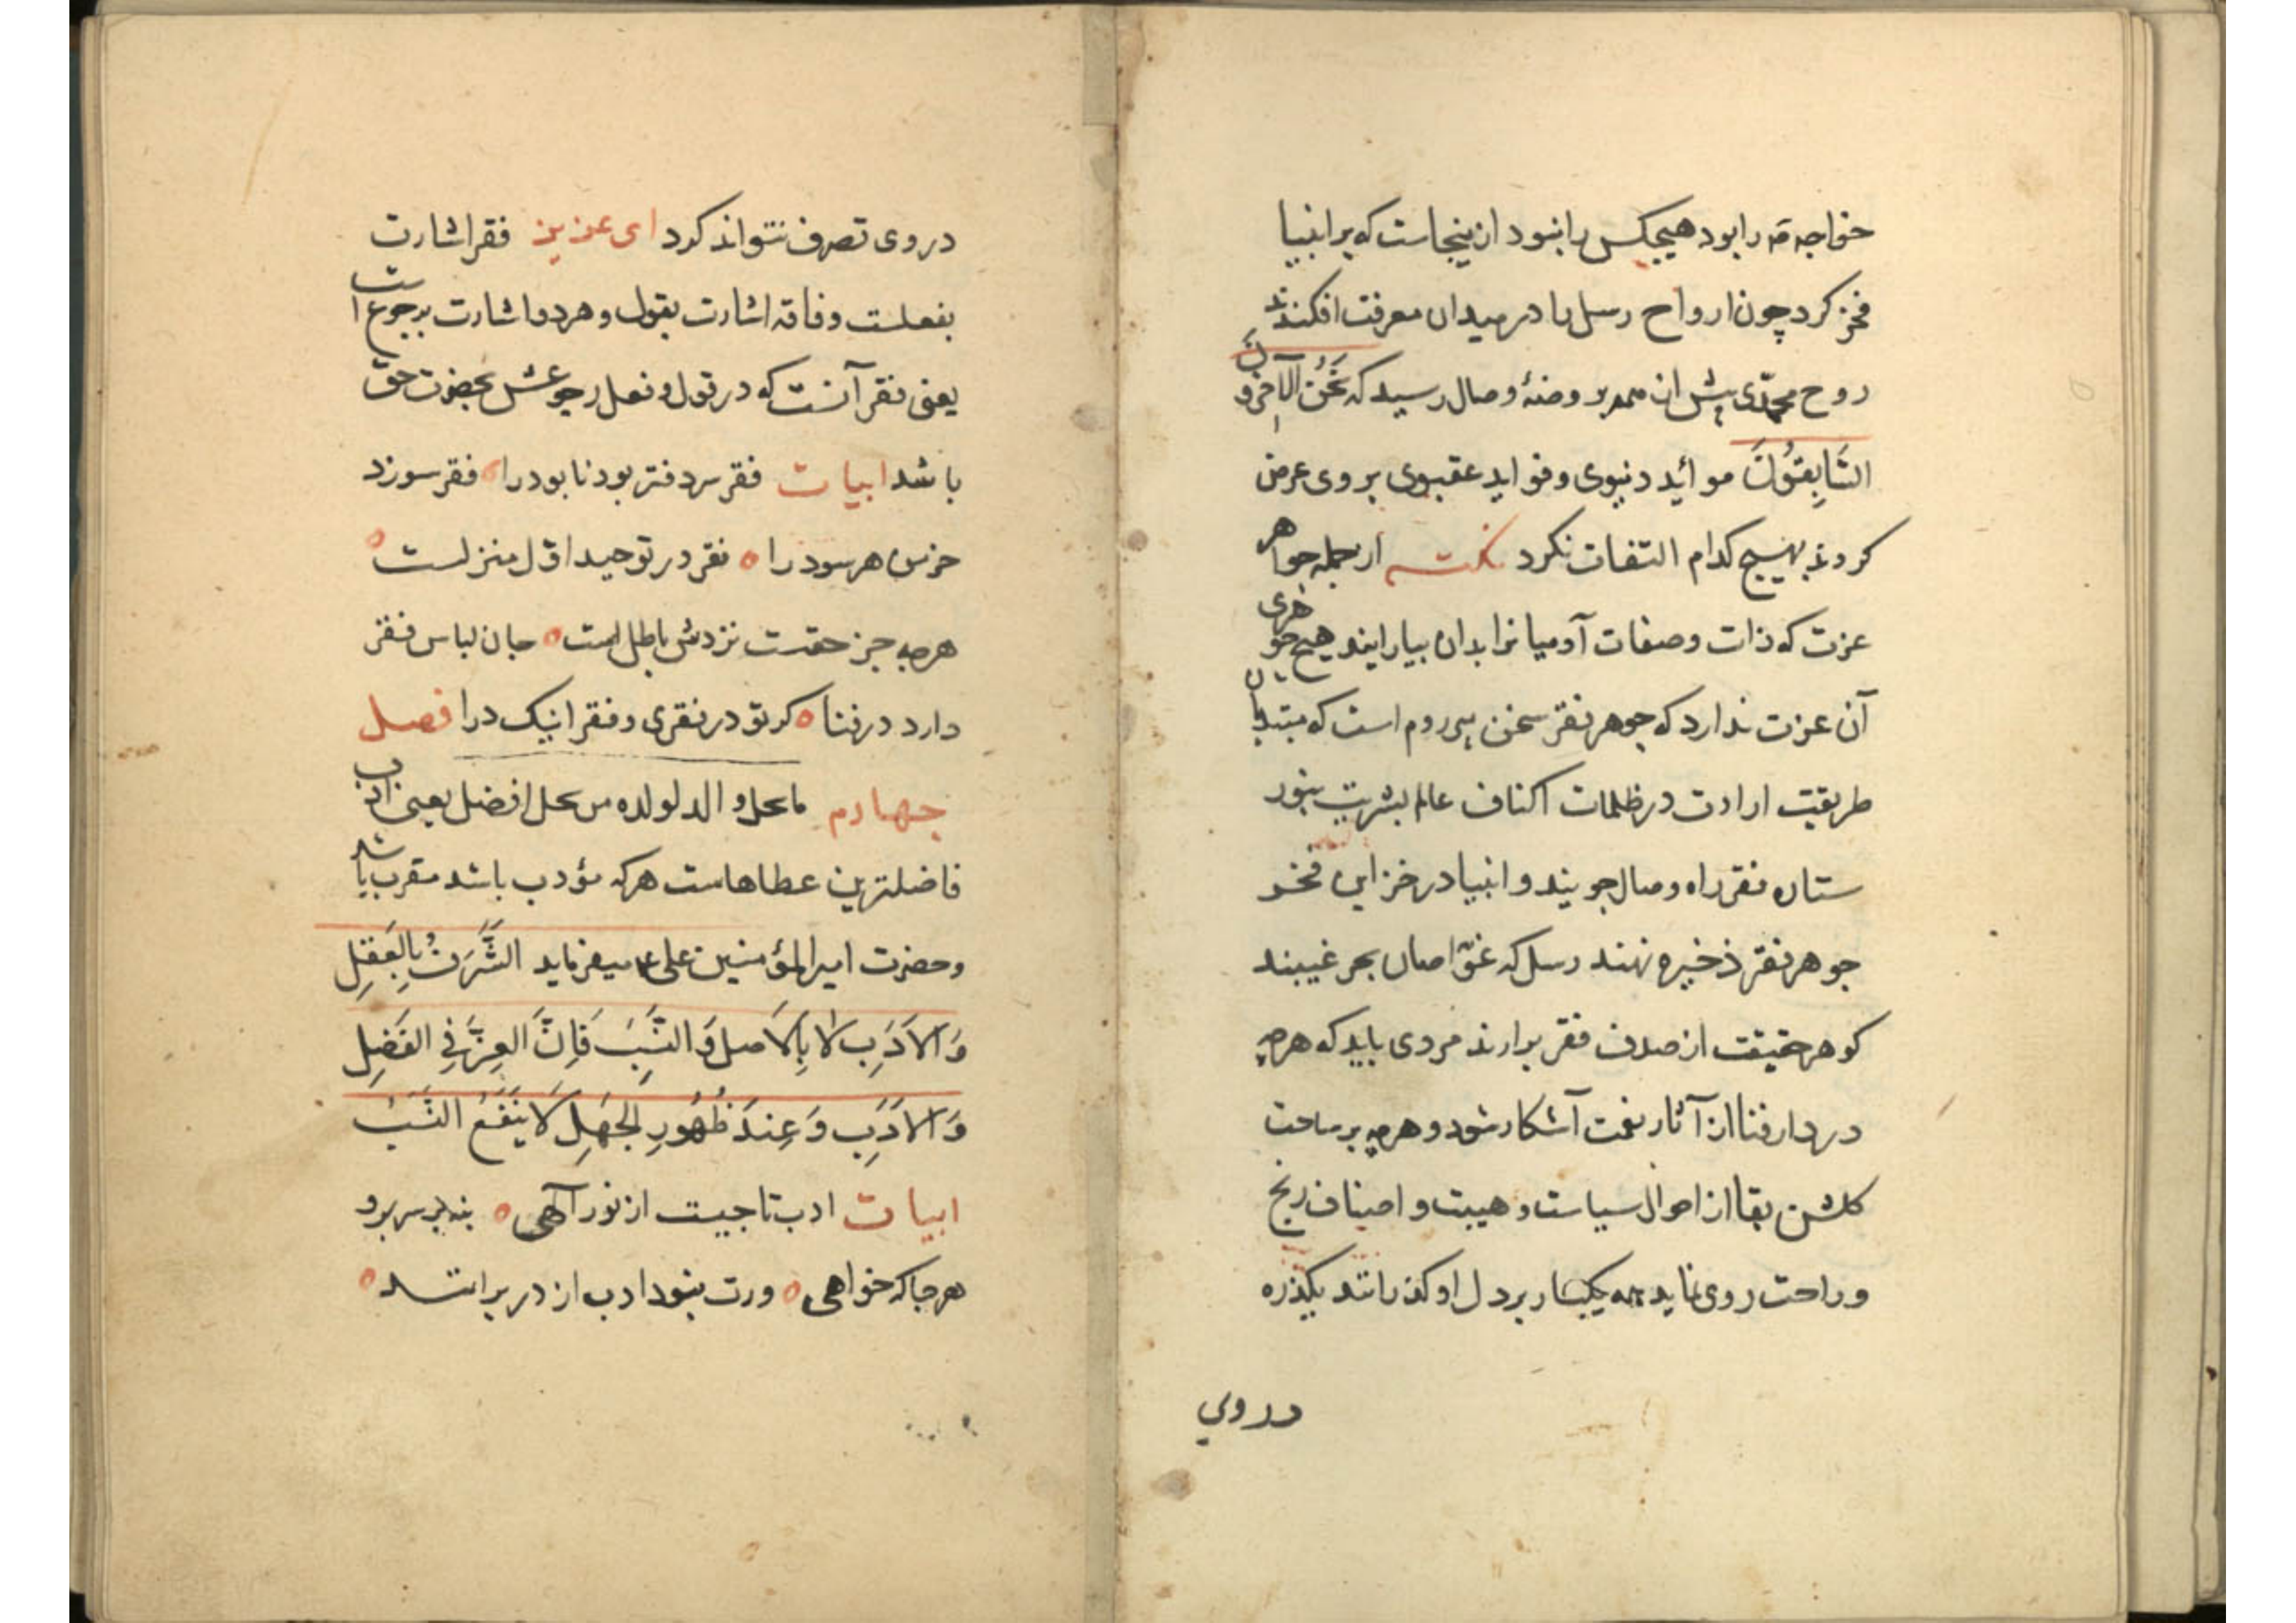 خواجه مه را بود هیچکس را نبود ازینجاست که بر انبیا
فخر کرد چون ارواح رسل را در میدان معرفت افکندند
روح محمّدی پیش از همه بروضهٔ وصال رسید که نَحْنُ الآخِرُونَ
السَّابِقُونَ موائد دنیوی و فواید عقبوی بر وی عرض
کردند بهیچ کدام التفات نکرد نکته از جمله جواهر
عزت که ذات و صفات آدمیانرا بدان بیارایند هیچ جوهری
آن عزت ندارد که جوهر فقر سخن پیر روم است که مبتدیان
طریقت ارادت در ظلمات اکناف عالم بشریت بنور
ستاره فقر راه وصال جویند و انبیا در خزاین فخر
جوهر فقر ذخیره نهند رسل که غوّاصان بحر غیبند
کوهر حقیقت از صدف فقر برارند مردی باید که هرچه
در دار فنا از آثار نعمت آشکار شود و هرچه بر ساحت
کلشن بقا از احوال سیاست و هیبت و اصناف رنج
و راحت روی نماید همه یکبار بر دل او کذرانند بکذره
در وی
در وی تصرف نتواند کرد ای عزیز فقر اشارت
بفعلست و فاقه اشارت بقول و هر دو اشارت برجوع است
یعنی فقر آنست که در قول و فعل رجوعش بحضرت حق
باشد ابیات فقر سر دفتر بود نابود را فقر سوزد
خرمن هر سود را فقر در توحید اوّل منزلست
هرچه جز حقست نزدش باطل است جان لباس فقر
دارد در فنا کر تو در فقری و فقرا نیک درا فصل
چهارم ما نحل والد لولده من نحل افضل یعنی ادب
فاضلترین عطاهاست هرکه مؤدب باشد مقرب باشد
و حضرت امیر المؤمنین علی ع میفرماید الشَّرَفُ بِالعَقلِ
وَالاَدَبِ لا بِالاَصلِ وَ النَّسَبِ فَاِنَّ العِزَّ فِی الفَضلِ
وَالاَدَبِ وَ عِندَ ظُهُورِ الجَهلِ لَا یَنفَعُ النَّسَبُ
ابیات ادب تاجیست از نور آلهی بنه بر سر برو
هر جا که خواهی ورت نبود ادب از در برانند